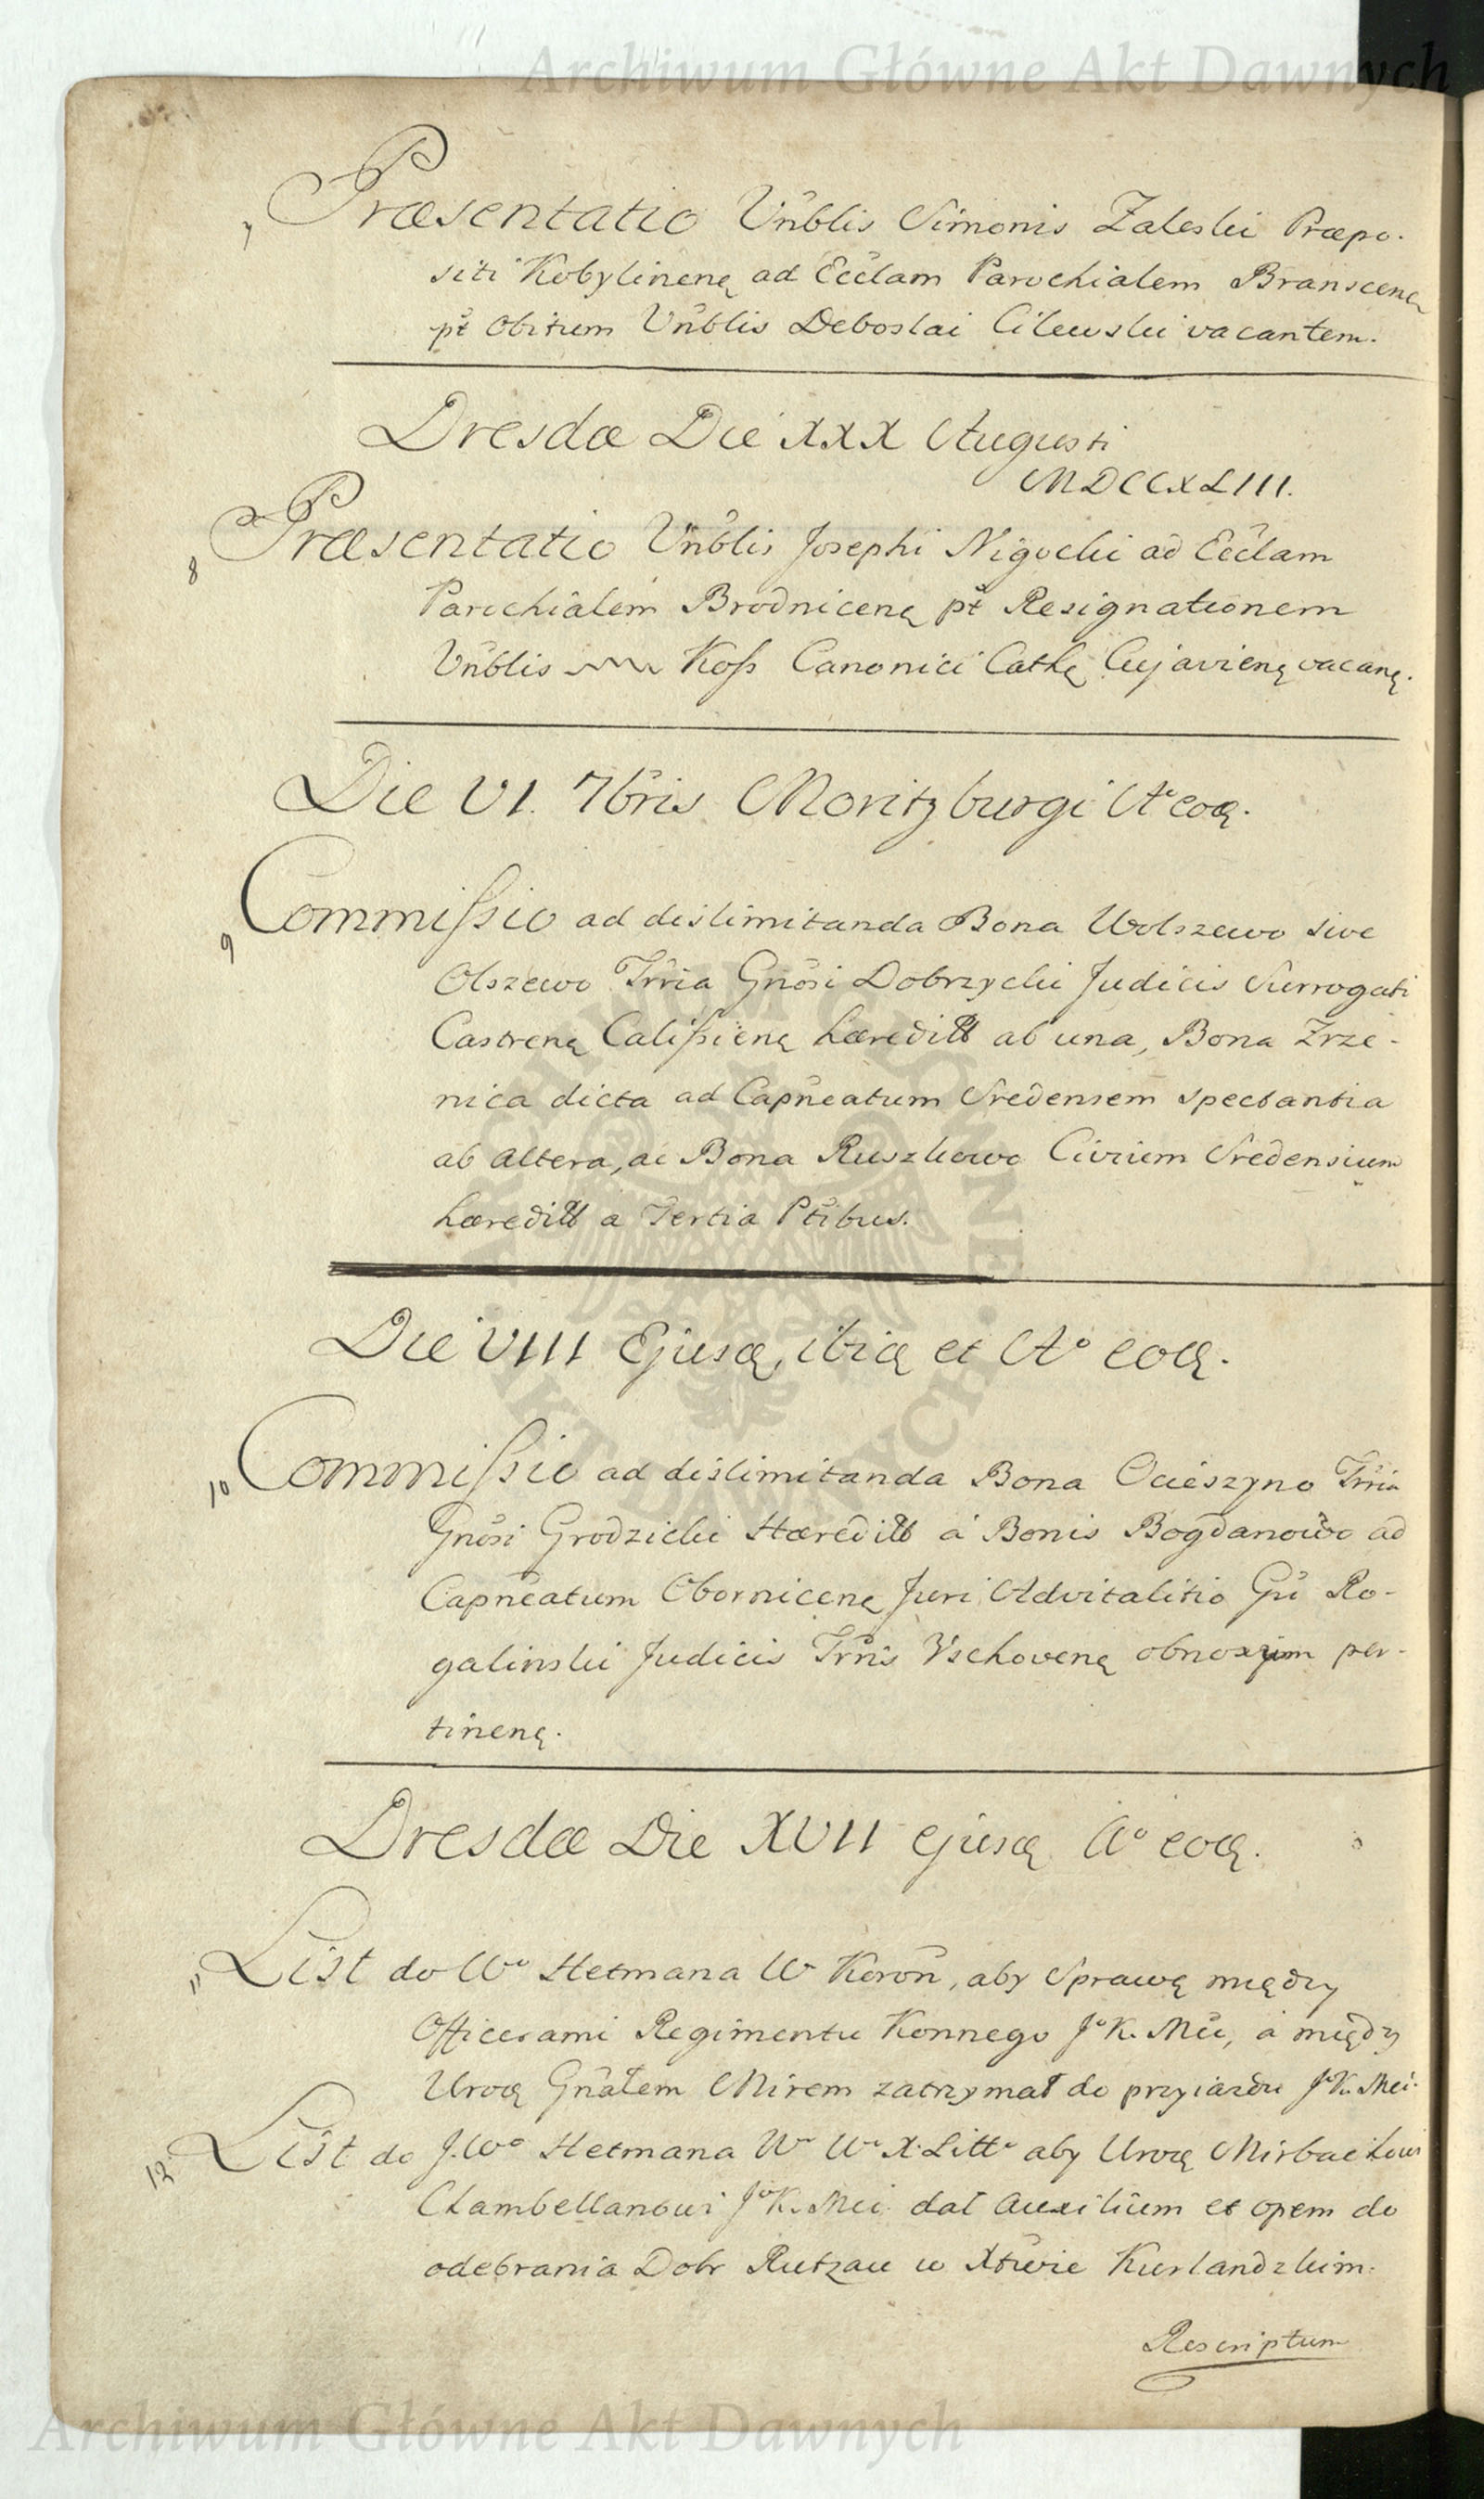 Archiwum Główne Akt Dawnych
7 Præsentatio Vnblis Simonis Zaleski Præpo-
siti Kobylinenę ad Ecclam Parochialem Branscenę
pt Obitum Vnblis Deboslai Cilewski vacantem.
Dresdæ Die XXX Augusti
MDCCXLIII.
8 Præsentatio Vnblis Josephi Nigocki ad Ecclam
Parochialem Brodnicenę pt Resignationem
Vnblis Koss Canonici Cathę Cujavienę vacanę.
Die VI. 7bris Moritzburgi Aº eoę.
9 Commissio ad dislimitanda Bona Wolszewo sive
Olszewo Trria Gnosi Dobrzycki Judicis Surrogati
Castrenę Calissienę hæreditt ab una, Bona Zrze-
nica dicta ad Capneatum Sredensem spectantia
ab altera, ac Bona Ruszkowo Civium Sredensium
hæreditt a Tertia Ptibus.
Die VIII Ejusę, ibię et Aº eoę.
10 Commissio ad dislimitanda Bona Ocieszyno Trria
Gnosi Grodzicki Hæreditt a Bonis Bogdanowo ad
Capneatum Obornicenę Juri Advitalitio Gu Ro-
galinski Judicis Trris Vschovenę obnoxium per-
tinenę.
Dresdæ Die XVII ejusę Aº eoę.
11 List do Wº Hetmana W Koron, aby Sprawę między
Officerami Regimentu Konnego Jº K. Mci, a między
Uroę Gnałem Mirem zatrzymał do przyiazdu Jº K. Mci.
12 List do J. Wº Hetmana Wº Wº X. Littº aby Uroę Mirbachowi
Chambellanowi Jº K. Mci dał auxilium et opem do
odebrania Dobr Rutzau w Xtwie Kurlandzkim.
Rescriptum
Archiwum Główne Akt Dawnych